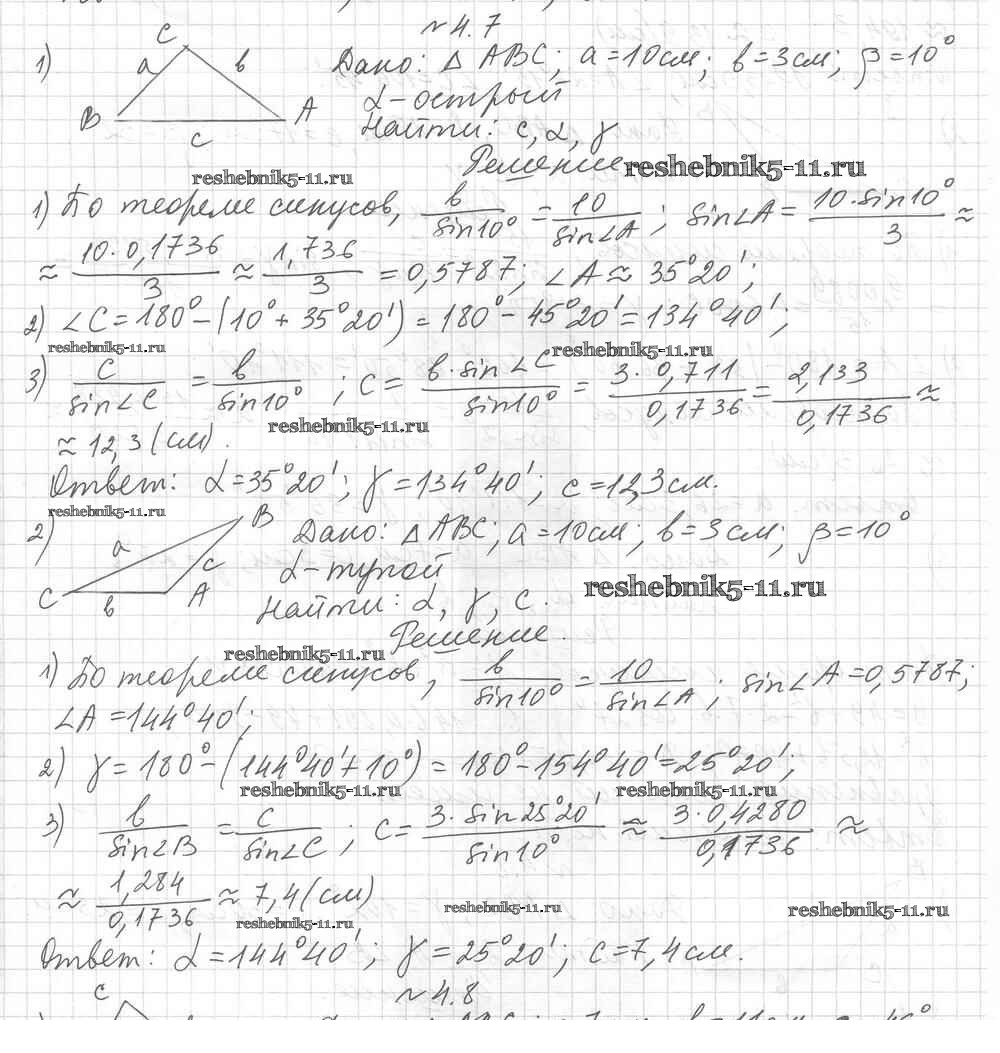 №4.7
1) C a b B A c Дано: △ABC; a=10см; b=3см; β=10°
α-острый
Найти: c, α, γ
Решение reshebnik5-11.ru
reshebnik5-11.ru
1) По теореме синусов, b/sin10° = 10/sin∠A ; sin∠A = 10·sin10°/3 ≈
≈ 10·0,1736/3 ≈ 1,736/3 = 0,5787; ∠A ≈ 35°20';
2) ∠C = 180° - (10° + 35°20') = 180° - 45°20' = 134°40';
reshebnik5-11.ru reshebnik5-11.ru
3) c/sin∠C = b/sin10° ; c = b·sin∠C/sin10° = 3·0,711/0,1736 = 2,133/0,1736 ≈
reshebnik5-11.ru
≈ 12,3 (см).
Ответ: α=35°20'; γ=134°40'; c=12,3см.
reshebnik5-11.ru
2) B a c C b A Дано: △ABC; a=10см; b=3см; β=10°
α-тупой
reshebnik5-11.ru
Найти: α, γ, c.
Решение.
reshebnik5-11.ru
1) По теореме синусов, b/sin10° = 10/sin∠A ; sin∠A=0,5787;
∠A = 144°40';
2) γ = 180° - (144°40' + 10°) = 180° - 154°40' = 25°20';
reshebnik5-11.ru reshebnik5-11.ru
3) b/sin∠B = c/sin∠C ; c = 3·sin25°20'/sin10° ≈ 3·0,4280/0,1736 ≈
≈ 1,284/0,1736 ≈ 7,4 (см)
reshebnik5-11.ru reshebnik5-11.ru reshebnik5-11.ru
Ответ: α=144°40'; γ=25°20'; c=7,4см.
№4.8
C